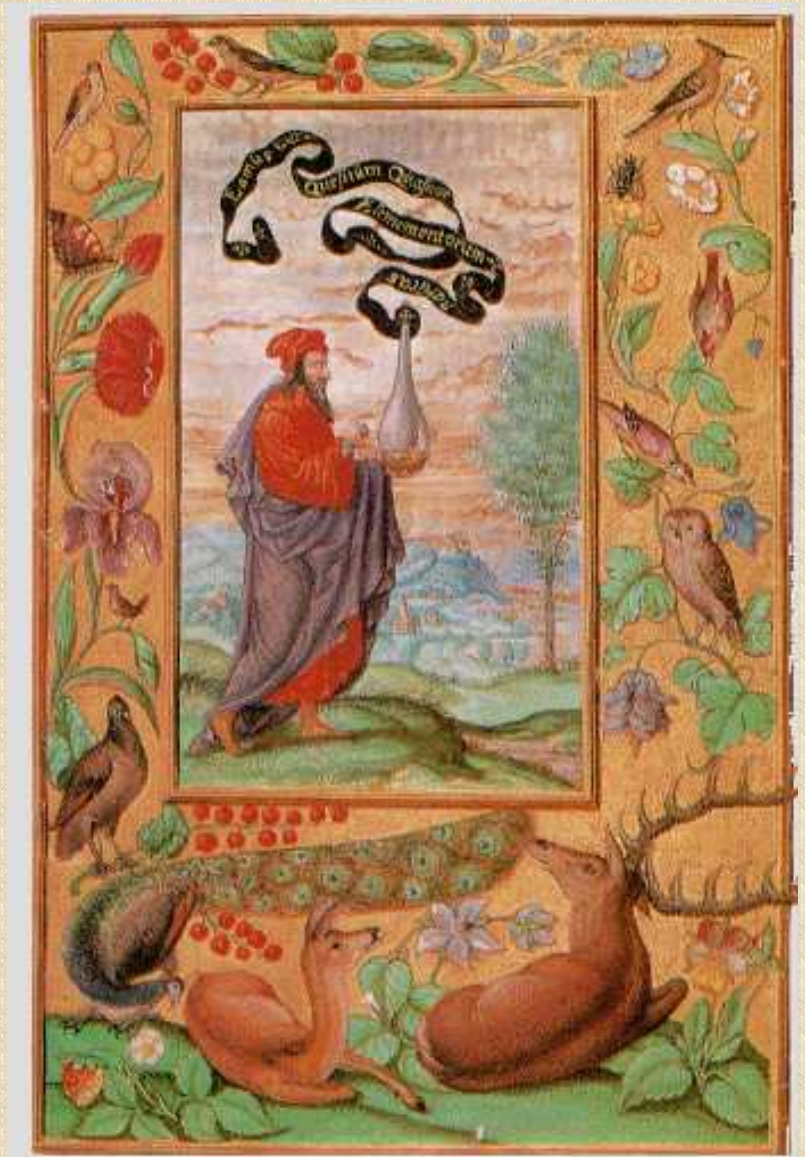 Eamus
Quesitum Quatuor
Elementorum
naturas